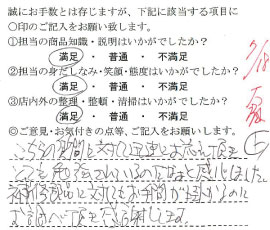 誠にお手数とは存じますが、下記に該当する項目に
○印のご記入をお願い致します。
①担当の商品知識・説明はいかがでしたか?
満足 ・ 普通 ・ 不満足
②担当の身だしなみ・笑顔・態度はいかがでしたか?
満足 ・ 普通 ・ 不満足
③店内外の整理・整頓・清掃はいかがでしたか?
満足 ・ 普通 ・ 不満足
◎ご意見・お気付きの点等、ご記入をお願いします。
こちらの質問に対して
とても勉強されているのだなと感じました
に対してもお手間がかかるのに
お調べ頂き感謝してます。